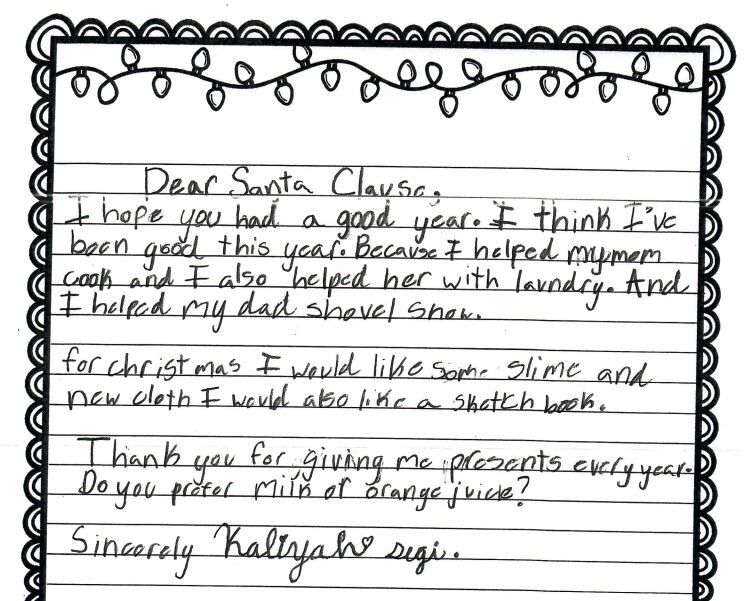 Dear Santa Clause.
I hope you had a good year. I think I've
been good this year. Because I helped my mom
cook and I also helped her with laundry. And
I helped my dad shovel snow.
for christmas I would like some slime and
new cloth I would also like a sketch book.
Thank you for giving me presents every year.
Do you prefer milk or orange juicle?
Sincerely Kaliyah segi.